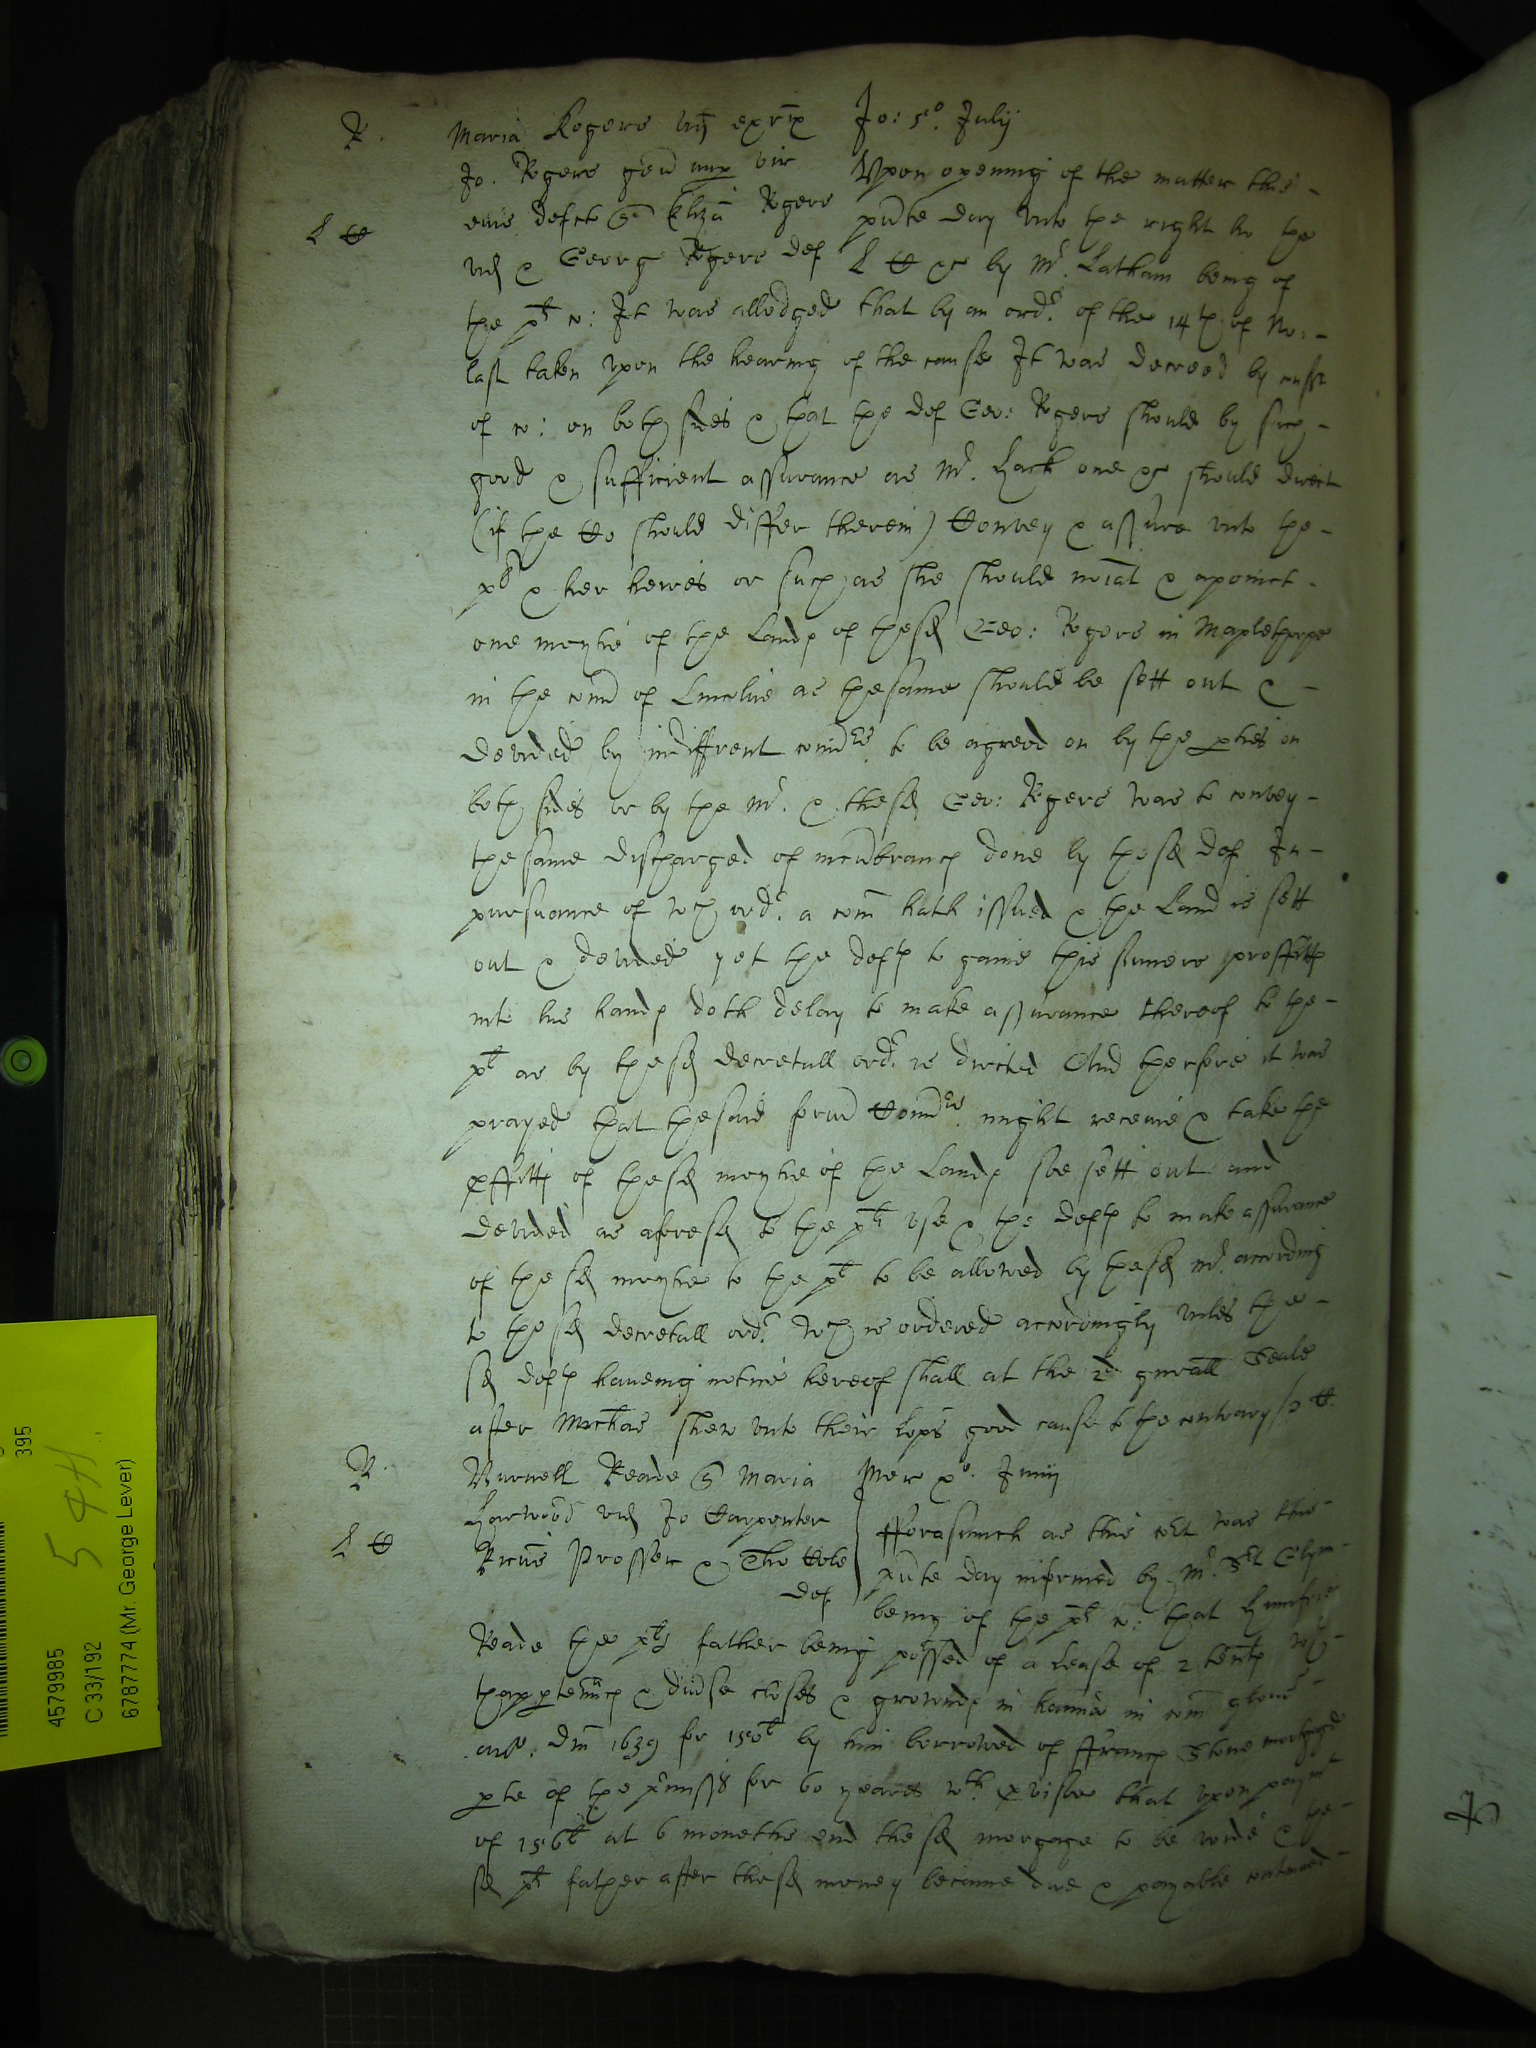 R. Maria Rogers vid exrix Jo: 5o. July
Jo. Rogers gen nup vir Vpon opening of the matter this
eius defct qr Eliza Rogers pnte day vnto the right ho the
L C vid & Georg Rogers def L C &c by Mr. Latham being of
the plt co: It was alledged that by an ordr. of the 14th of No:
last taken vpon the hearing of the cause It was decreed by
of co: on both sides & that the def Geo: Rogers should by such
good & sufficient assurance as Mr. Hach one &c should direct
(if the Co should differ therein) Convey & assure vnto the
plt & her heires or such as she should noiat & apoinct
one moytie of the Lands of thesd Geo: Rogers in Maplethorpe
in the com of Lincolne as the same should be sett out &
devided by indiffrent comrs. to be agreed on by the pties on
both sides or by the Mr. & thesd Geo: Rogers was to convey
the same discharged of incumbrances done by thesd def In
pursuance of wch ordr. a com hath issued & the Land is sett
out & devided yet the defts to gaine this sumers proffitts
into his hands doth delay to make assurance thereof to the
plt as by thesd decretall ordr. is directed And therfore it was
prayed that the said formr Comrs. might receive & take the
pffitts of thesd moytie of the Lands soe sett out and
devided as aforesd to the plts vse & the defts to make assurance
of the sd moytie to the plt to be allowed by thesd Mr. according
to thesd decretall ordr. wch is ordered accordingly vnles the
sd defts haueing notice hereof shall at the 2d genrall Seale
after Michas shew vnto their lopps good cause to the contrary
R. Burnell Reade qr Maria Mer xo. Junij
Harwood vid Jo Carpenter fforasmuch as this cort was this
L C Ricus Prosser & Tho Cole pnte day informed by Mr. Srt Glyn
def being of the plts co: that
Reade the plts father being possed of a Lease of 2 tenemts wth
thappurtenncs & diuse closes & grounds in in com glouc
ano. Dm 1639 for 150li by him borrowed of ffrancs Stone mortgged
pte of the pmisses for 60 yeares wth. pviso that vpon paymt
of 156li at 6 moneths end the sd morgage to be void & the
sd plts father after thesd money became due & payable
4579985
C 33/192
6787774 (Mr. George Lever)
395
54H.